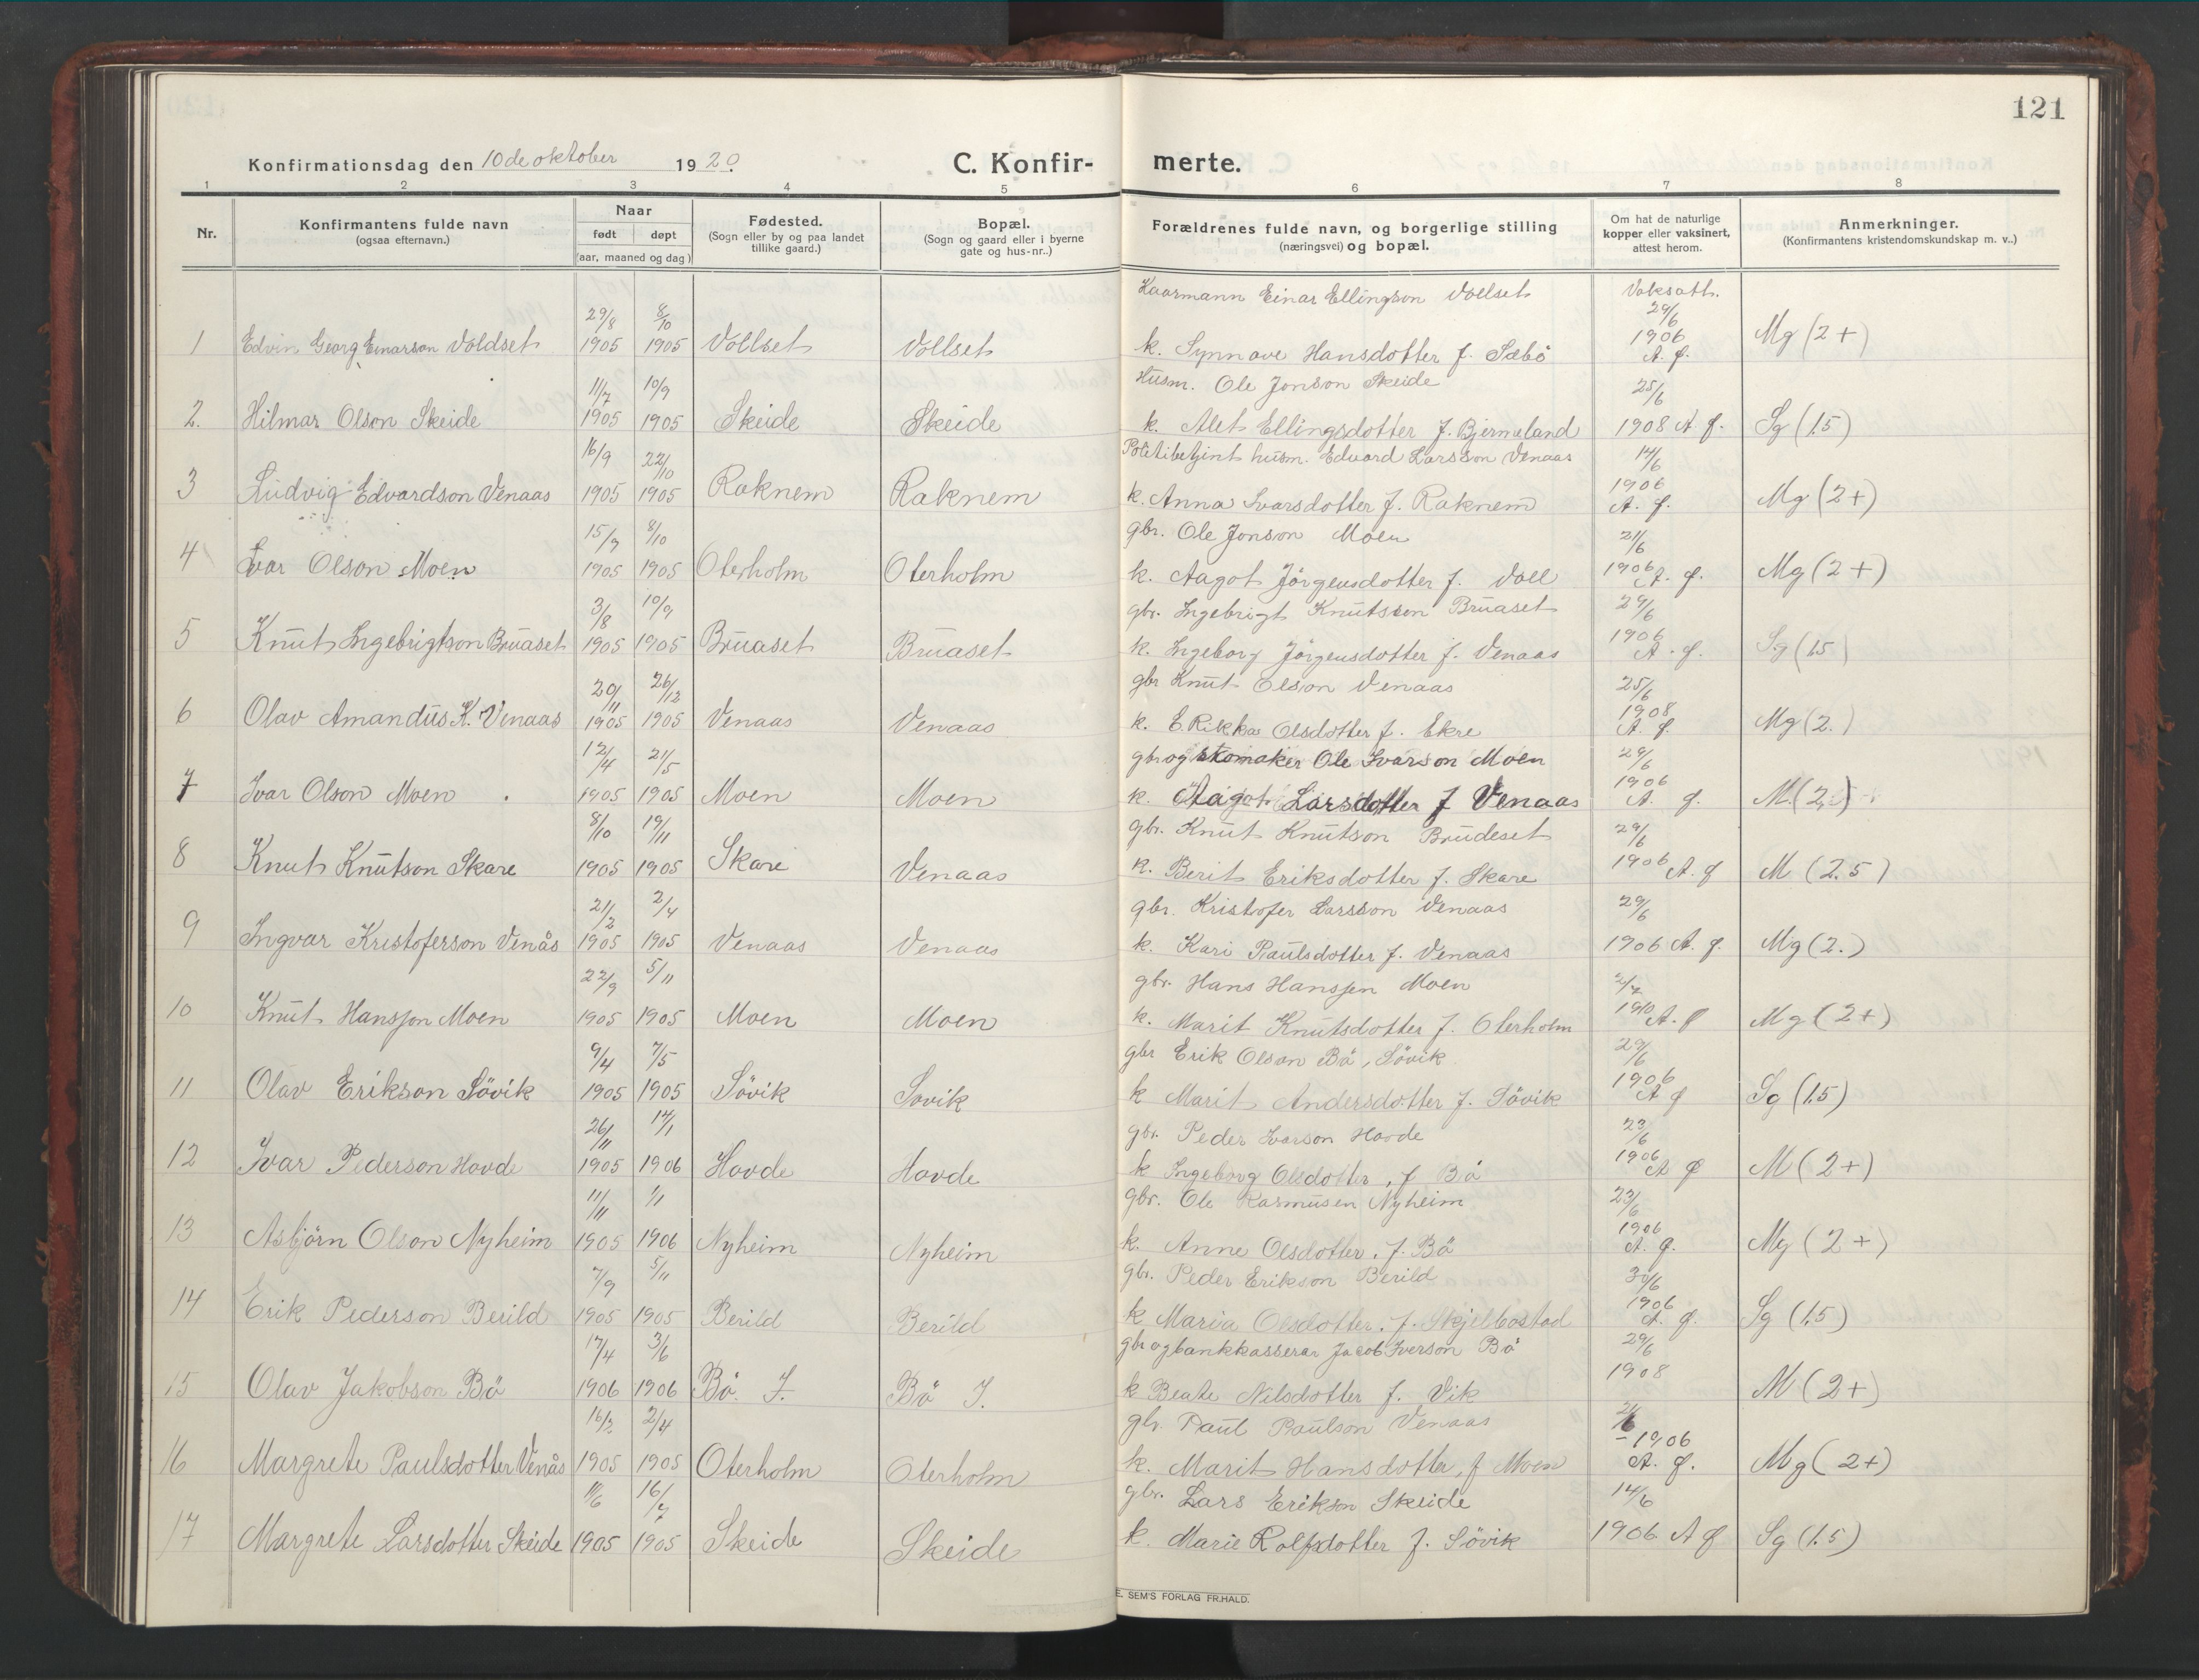 121
Konfirmationsdag den 10de oktober 1920. C. Konfirmerte.
1 2 3 4 5 6 7 8
Nr. Konfirmantens fulde navn (ogsaa efternavn.) Naar født døpt (aar, maaned og dag) Fødested. (Sogn eller by og paa landet tillike gaard.) Bopæl. (Sogn og gaard eller i byerne gate og hus-nr..) Forældrenes fulde navn, og borgerlige stilling (næringsvei) og bopæl. Om hat de naturlige kopper eller vaksinert, attest herom. Anmerkninger. (Konfirmantens kristendomskundskap m. v..)
29/8 8/10 Einar Ellingson Vollset Vaksatt. 29/6
1 Edvin Georg Einarson Voldset 1905 1905 Vollset Vollset k. Synnave Hansdotter f. Sæbö 1906 A. f. Mg (2+)
11/7 10/9 Husm. Ole Jonson Skeide 25/6
2. Hilmar Olson Skeide 1905 1905 Skeide Skeide k. Alet Ellingsdotter f. Bjermeland 1908 A f. Sg (1.5)
16/9 22/10 Politibetjent husm. Edvard Larsson Venaas 14/6
3 Ludvig Edvardson Venaas 1905 1905 Raknem Raknem k. Anna Ivarsdotter f. Raknem 1906 A. f. Mg (2+)
15/9 8/10 gbr. Ole Jonson Moen 21/6
4 Ivar Olson Moen 1905 1905 Oterholm Oterholm k. Aagot Jörgensdotter f. Voll 1906 A. f. Mg (2+)
3/8 10/9 gbr. Ingebrigt Knutsson Bruaset 29/6
5 Knut Ingebrigtson Bruaset 1905 1905 Bruaset Bruaset k. Ingeborg Jörgensdotter f. Venaas 1906 A. f. Sg (1.5)
20/11 26/12 gbr Knut Olson Venaas 25/6
6 Olav Amandus K. Venaas 1905 1905 Venaas Venaas k. E Rikka Olsdotter f. Ekre 1908 A. f. Mg (2.)
12/4 21/5 gbr og skomaker Ole Ivarson Moen 29/6
7 Ivar Olson Moen 1905 1905 Moen Moen k. Aagot Larsdotter f Venaas 1906 A. f. M. (2,5)
8/10 19/11 gbr. Knut Knutson Brudeset 29/6
8 Knut Knutson Skare 1905 1905 Skare Venaas k. Berit Eriksdotter f. Skare 1906 A. f M (2.5)
21/2 2/4 gbr. Kristofer Larsson Venaas 29/6
9 Ingvar Kristoferson Venås 1905 1905 Venaas Venaas k. Kari Paulsdotter f. Venaas 1906 A. f. Mg (2.)
22/9 5/11 gbr. Hans Hansson Moen 2/7
10 Knut Hansson Moen 1905 1905 Moen Moen k. Marit Knutsdotter f. Oterholm 1910 A. f Mg (2+)
9/4 7/5 gbr Erik Olson Bö, Sövik 29/6
11 Olav Erikson Sövik 1905 1905 Sövik Sovik k Marit Andersdotter f. Sövik 1906 A f Sg (1.5)
26/11 14/1 gbr. Peder Ivarson Hovde 23/6
12 Ivar Pederson Hovde 1905 1906 Hovde Hovde k Ingeborg Olsdotter, f Bö 1906 A f M (2+)
11/11 1/1 gbr. Ole Rasmusen Nyheim 23/6
13 Asbjörn Olson Nyheim 1905 1906 Nyheim Nyheim k. Anne Olsdotter. f. Bö 1906 A. f. Mg (2+)
7/9 5/11 gbr. Peder Erikson Berild 30/6
14 Erik Pederson Berild 1905 1905 Berild Berild k Maria Olsdotter. f. Skjelbostad 1906 A. f. Sg (1.5)
17/4 3/6 gbr og bankkasserar Jacob Iverson Bö 29/6
15 Olav Jakobson Bö 1906 1906 Bö. I. Bö I. k Beate Nilsdotter f. Vik 1908 M (2+)
16/2 2/4 gbr. Paul Paulson Venaas
16 Margrete Paulsdotter Venås 1905 1905 Oterholm Oterholm k. Marit Hansdotter, f Moen 1906 A. f. Mg (2+)
11/6 16/7 gbr. Lars Erikson Skeide 14/6
17 Margrete Larsdotter Skeide 1905 1905 Skeide Skeide k. Marie Rolfsdotter f. Sövik 1906 A f Sg (1.5)
E. SEM'S FORLAG FR.HALD.